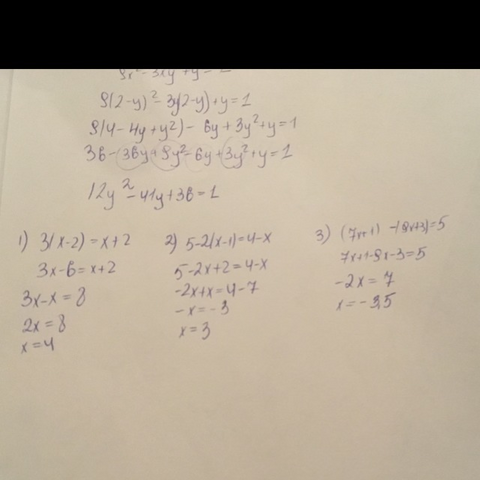 9(2-y)²-3y(2-y)+y=1
9(4-4y+y²)-6y+3y²+y=1
36-36y+9y²-6y+3y²+y=1
12y²-41y+36=1
1) 3(x-2)=x+2
3x-6=x+2
3x-x=8
2x=8
x=4
2) 5-2(x-1)=4-x
5-2x+2=4-x
-2x+x=4-7
-x=-3
x=3
3) (7x+1)-(9x+3)=5
7x+1-9x-3=5
-2x=7
x=-3,5